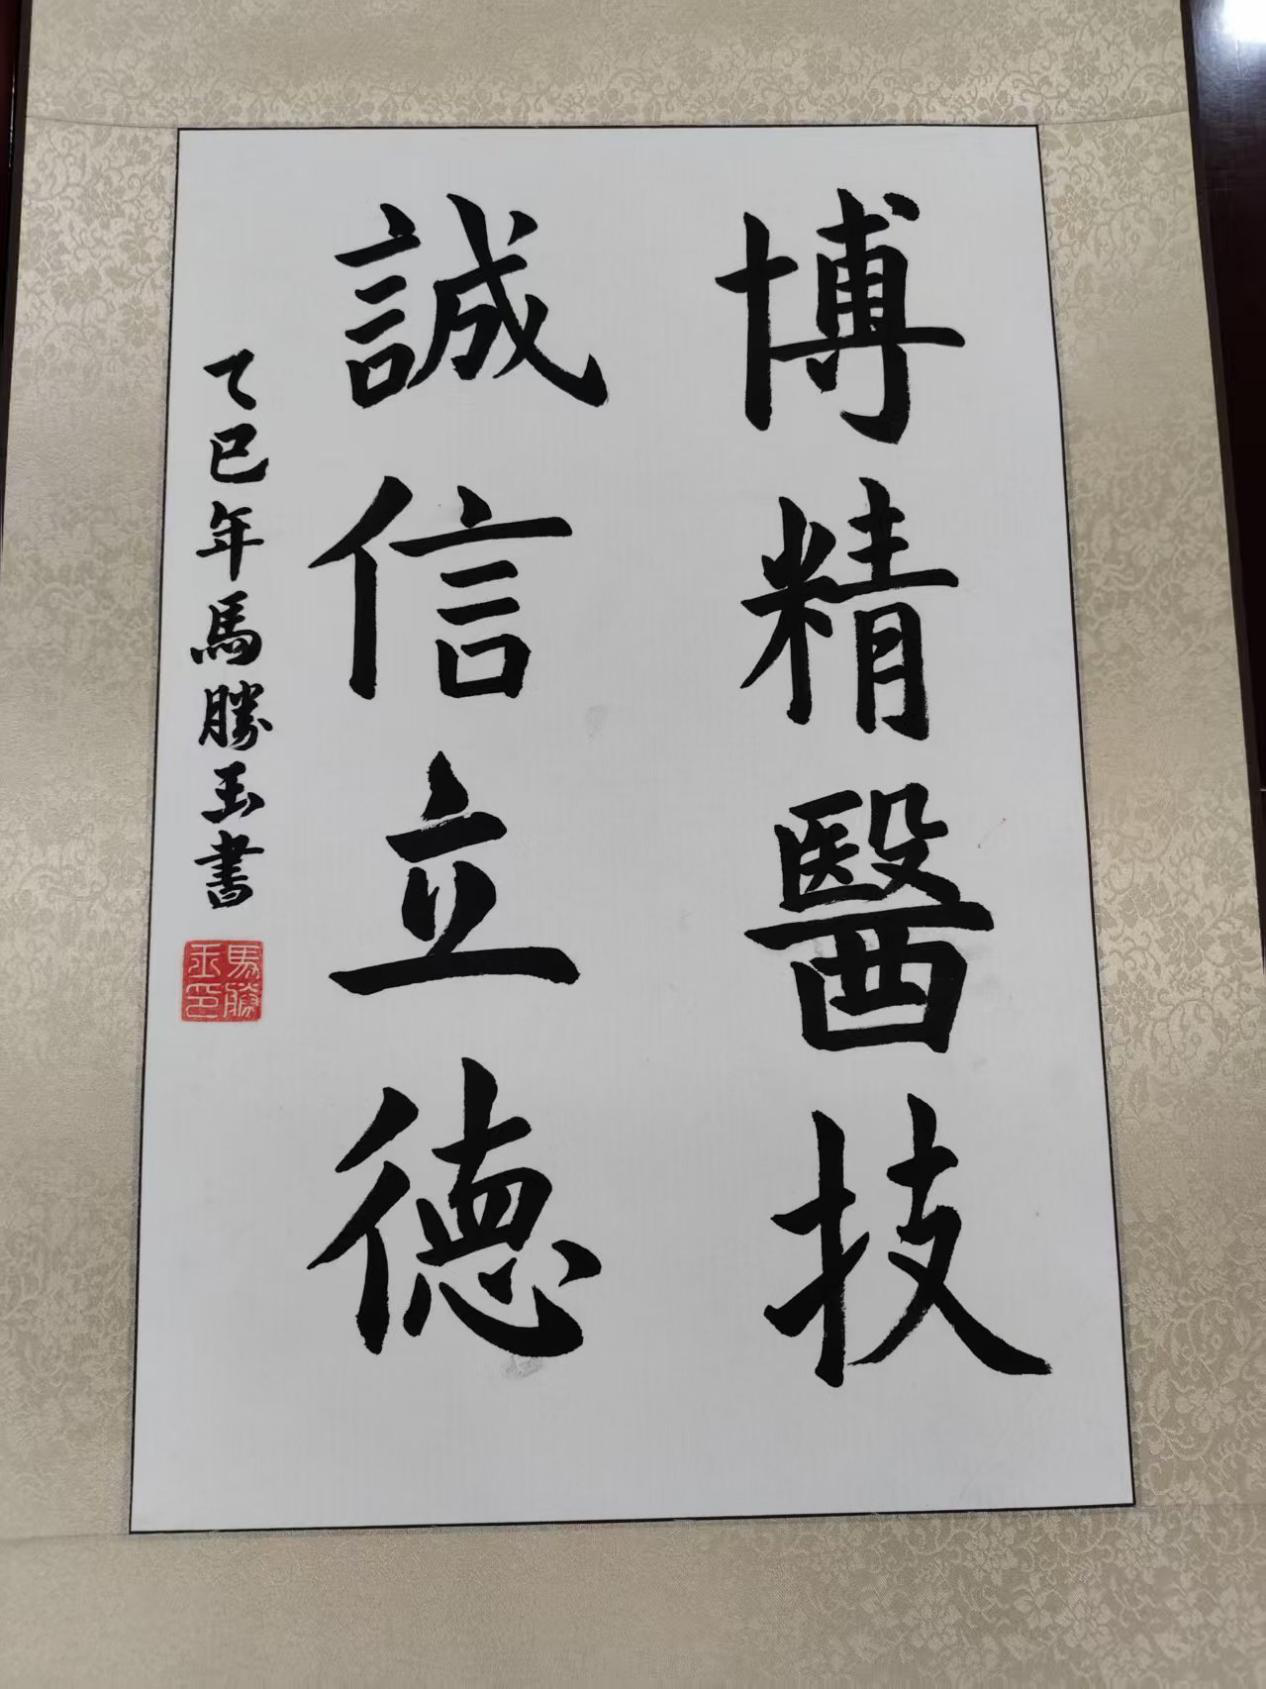 博精醫技
誠信立德
乙巳年馬勝玉書
馬勝玉印